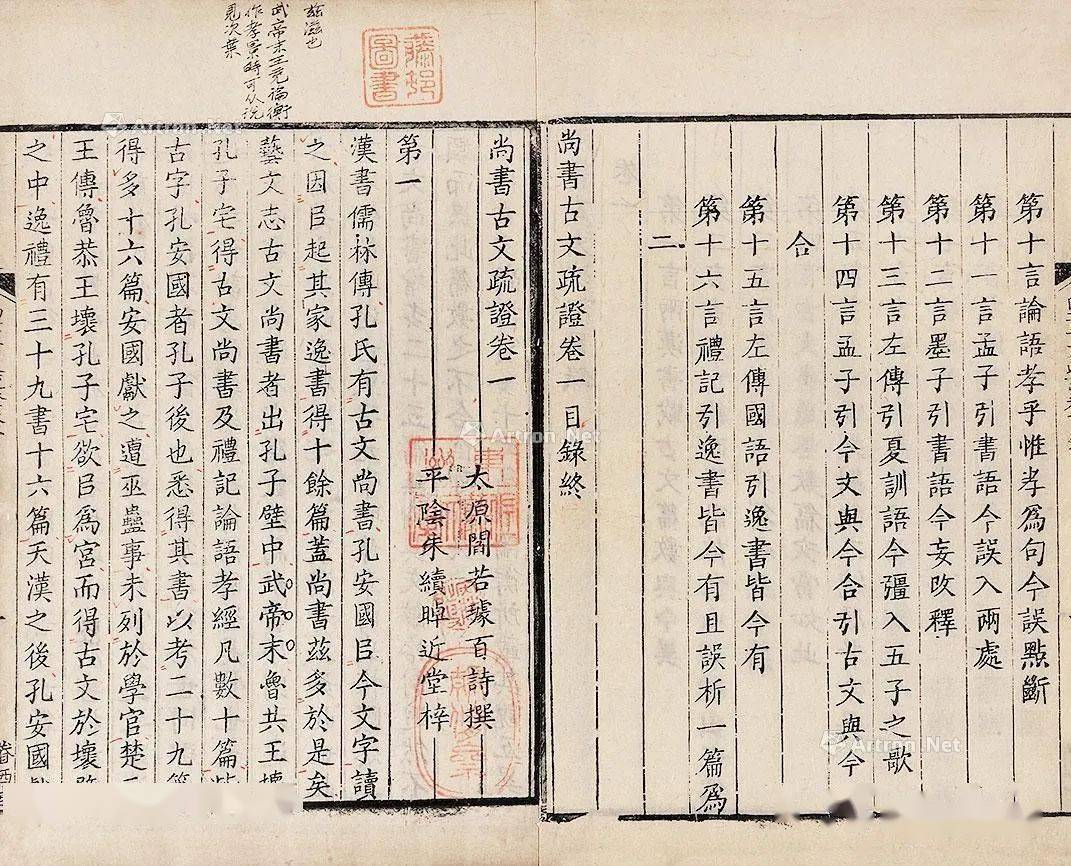 第十言論語孝乎惟孝爲句今誤點斷
第十一言孟子引書語今誤入兩處
第十二言墨子引書語今妄改釋
第十三言左傳引夏訓語今彊入五子之歌
第十四言孟子引今文與今合引古文與今
合
第十五言左傳國語引逸書皆今有
第十六言禮記引逸書皆今有且誤析一篇爲
二
尚書古文疏證卷一目錄終
藤邨圖書
尚書古文疏證卷一
太原閻若璩百詩撰
平陰朱續晫近堂梓
第一
漢書儒林傳孔氏有古文尚書孔安國㠯今文字讀
之因㠯起其家逸書得十餘篇蓋尚書茲多於是矣
藝文志古文尚書者出孔子壁中武帝末魯共王壊
孔子宅得古文尚書及禮記論語孝經凡數十篇皆
古字孔安國者孔子後也悉得其書以考二十九篇
得多十六篇安國獻之遭巫蠱事未列於學官楚
王傳魯恭王壞孔子宅欲㠯爲宮而得古文於壞
之中逸禮有三十九書十六篇天漢之後孔安國
茲滋也
武帝末王充論衡
作孝景時可从說
見次葉
Artron.Net
Artron.Net
Artron.Net